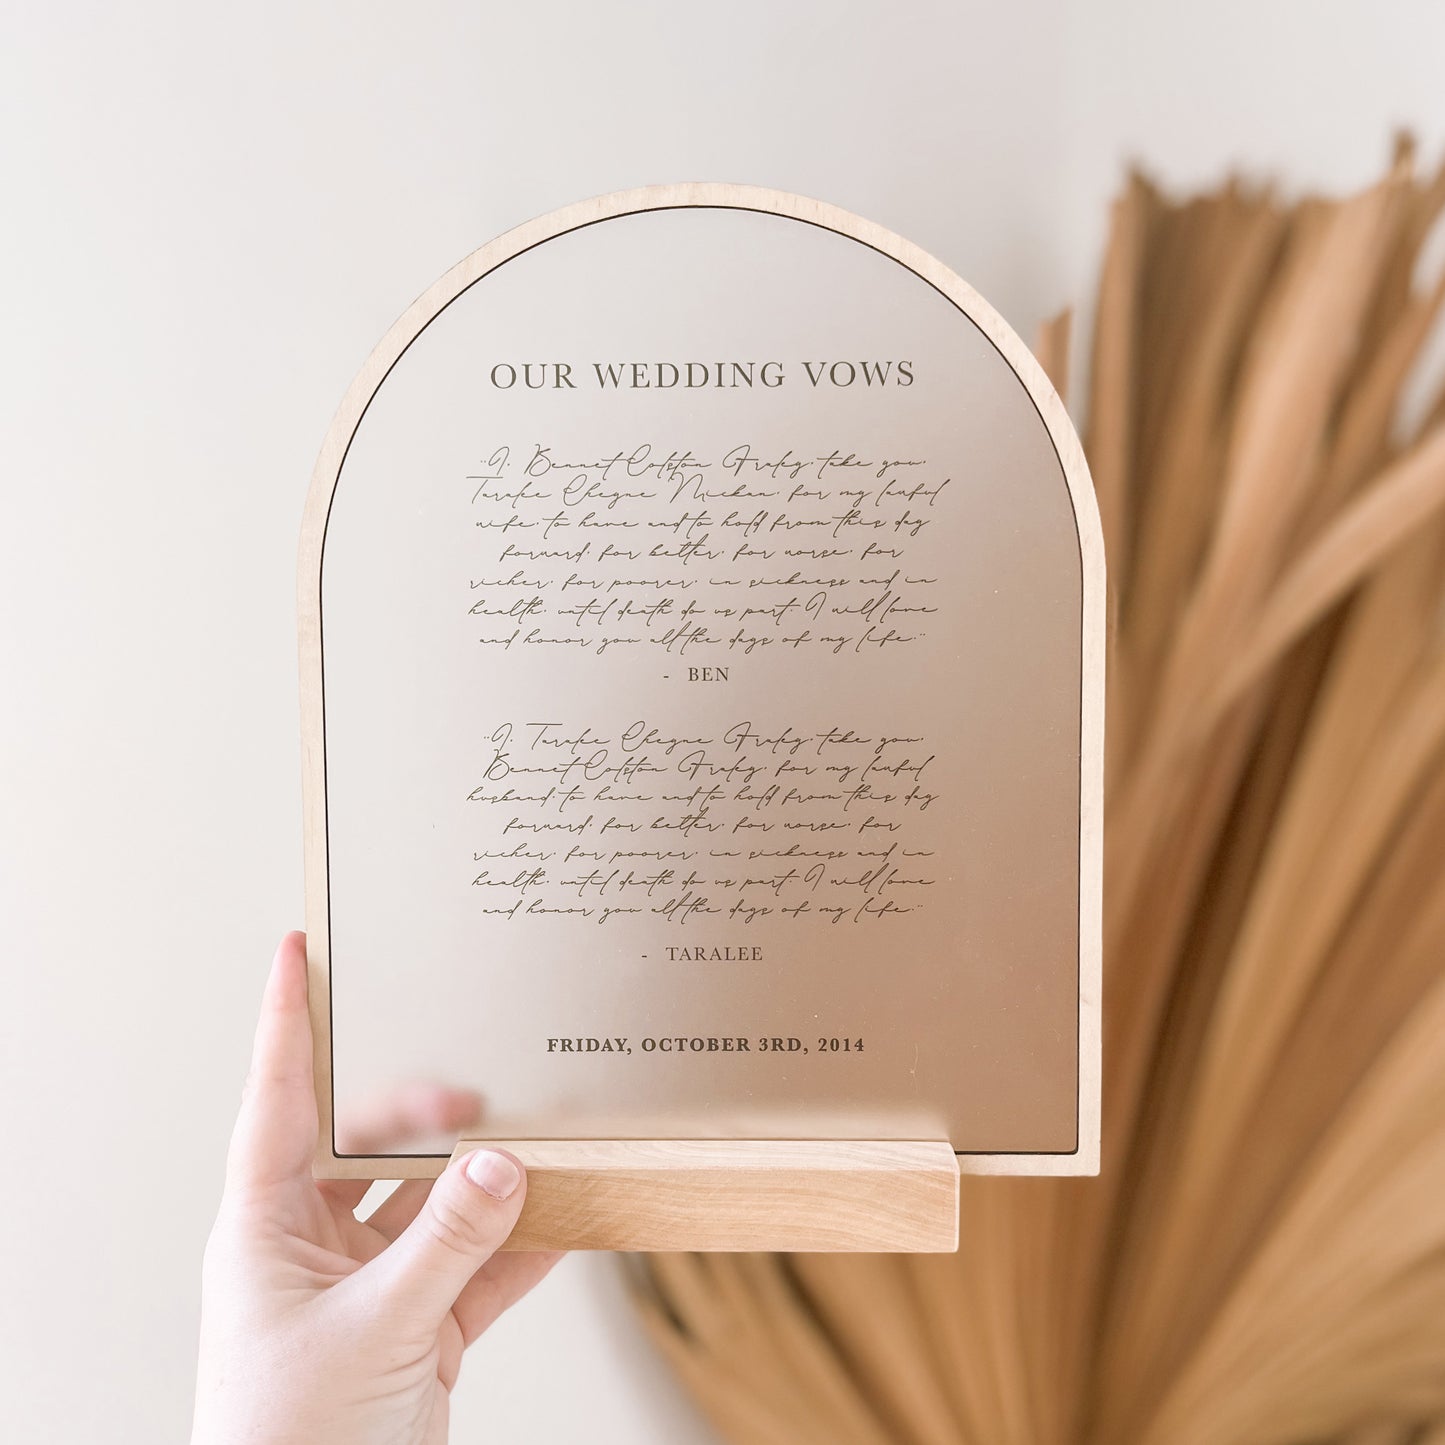 OUR WEDDING VOWS
"I, Bennet Colston Fraley, take you,
Taralee Cheyne Mickan, for my lawful
wife, to have and to hold from this day
forward, for better, for worse, for
richer, for poorer, in sickness and in
health, until death do us part. I will love
and honor you all the days of my life."
- BEN
"I, Taralee Cheyne Fraley, take you,
Bennet Colston Fraley, for my lawful
husband, to have and to hold from this day
forward, for better, for worse, for
richer, for poorer, in sickness and in
health, until death do us part. I will love
and honor you all the days of my life."
- TARALEE
FRIDAY, OCTOBER 3RD, 2014